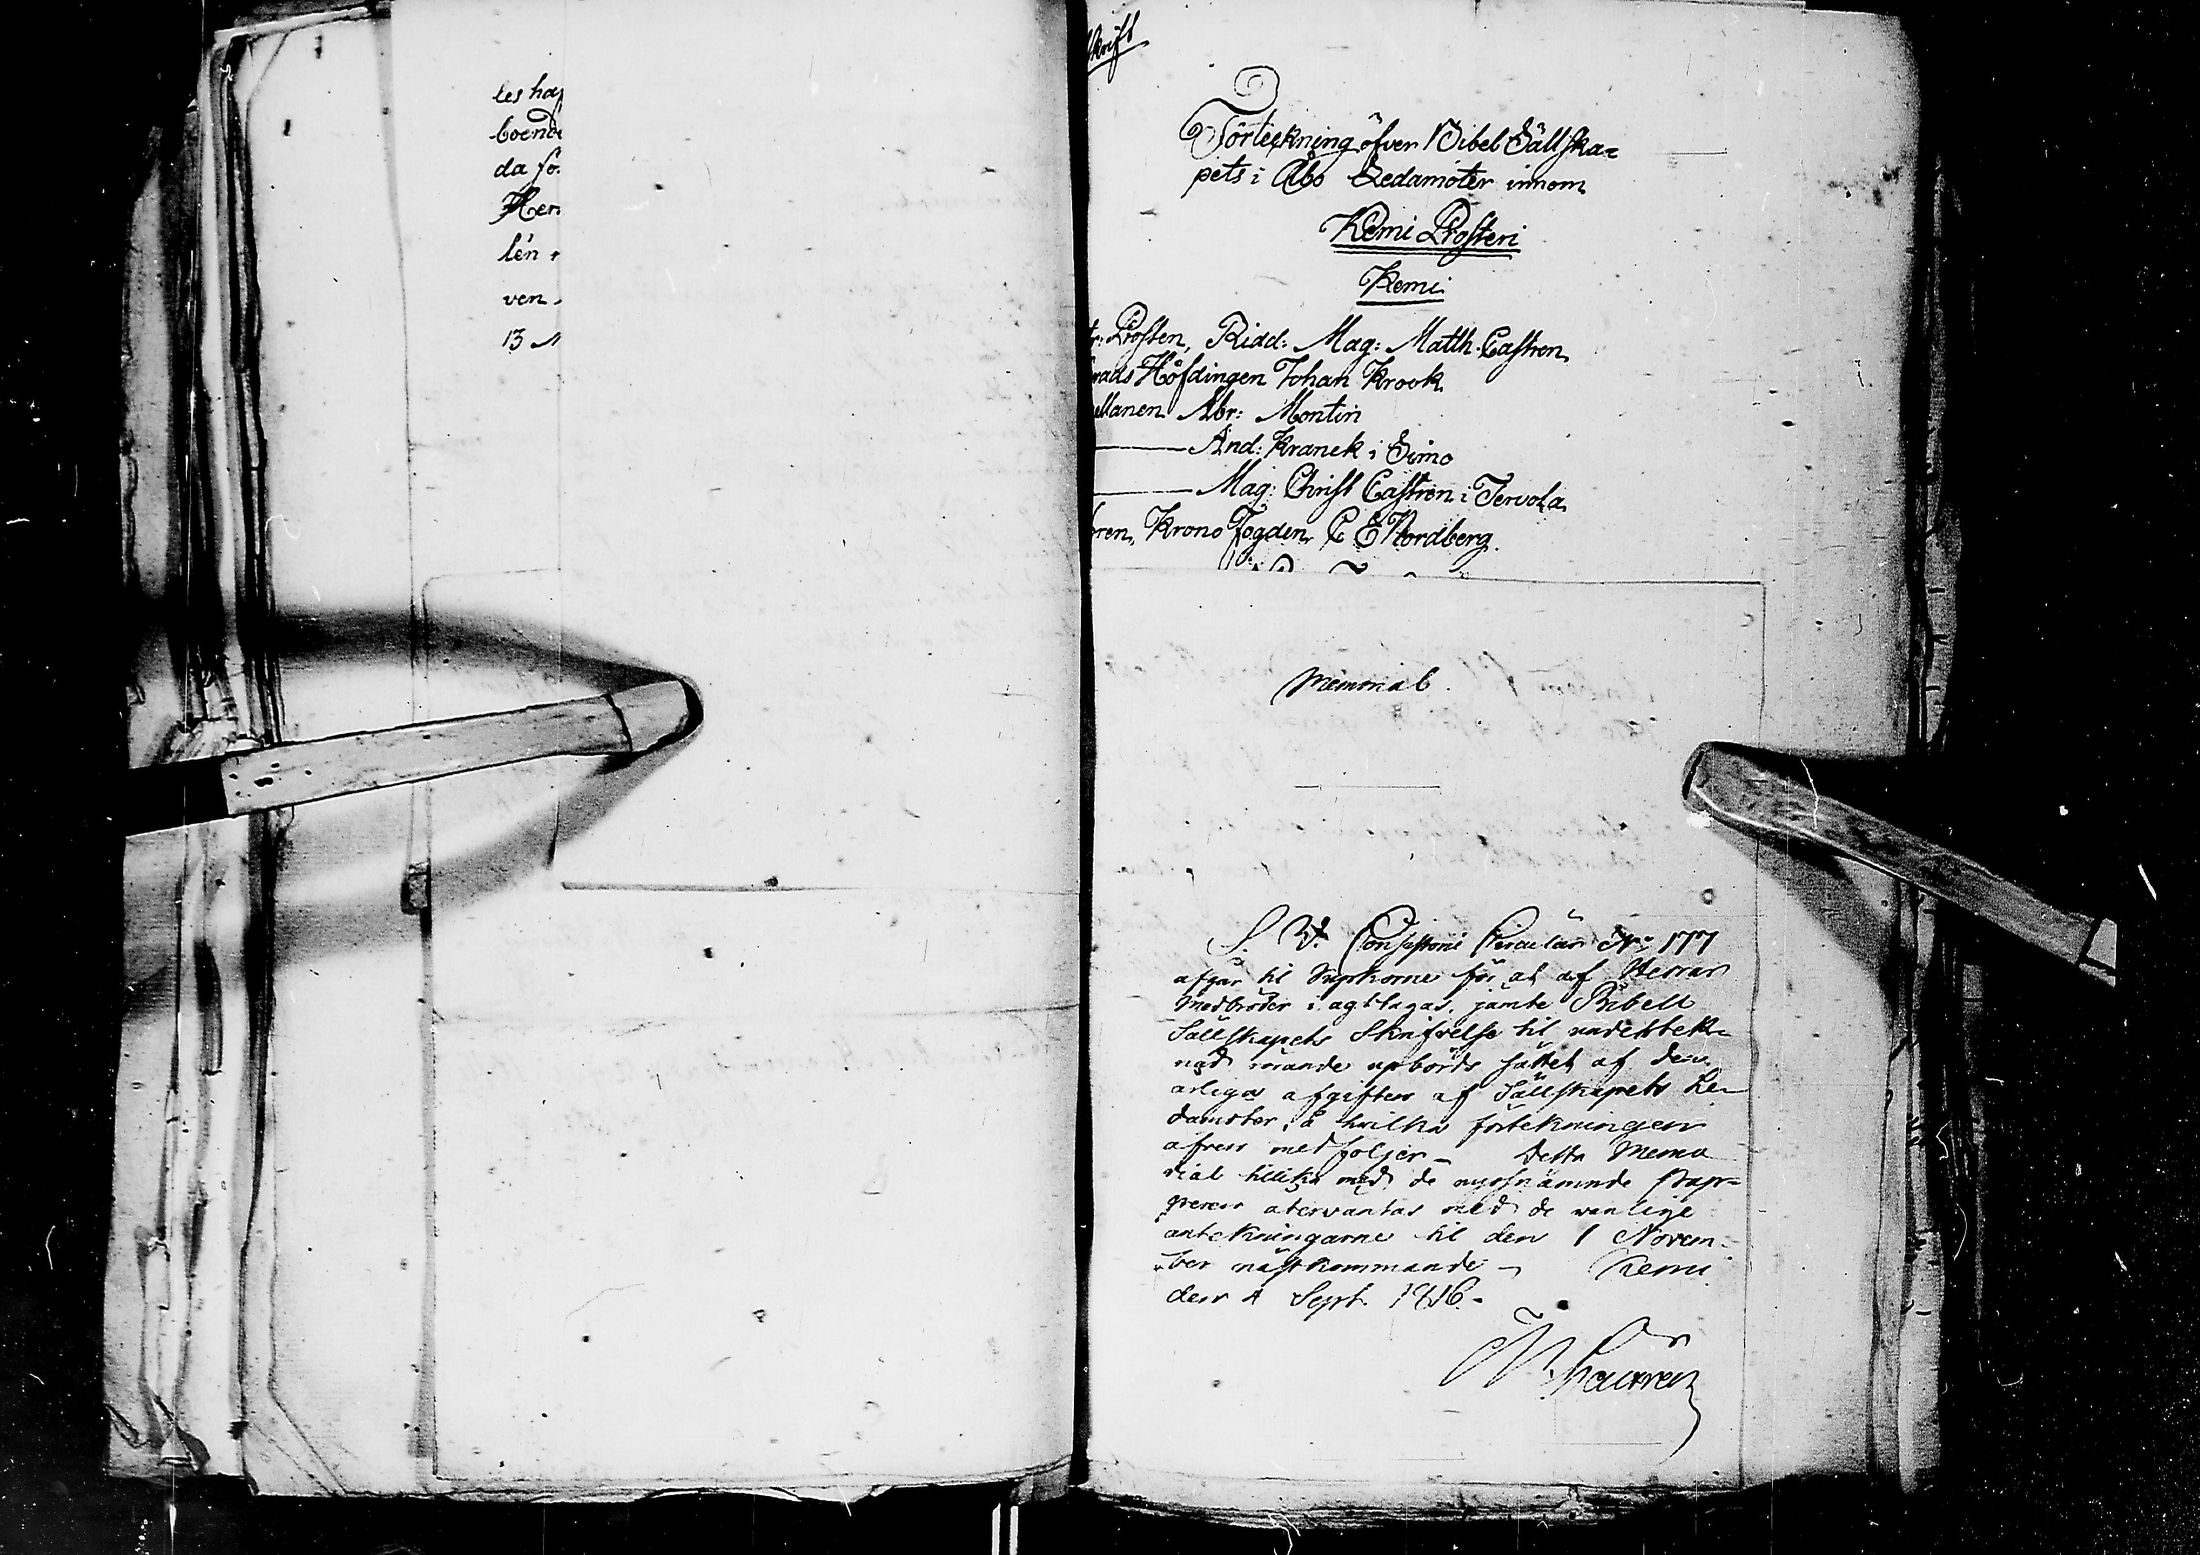 les haf
boende
da fö
Hen
lén
ven
13
skrift
Förteckning öfver Bibel Sällska=
pets i Åbo Ledamöter innom
Kemi Prosteri
Kemi
Prosten, Ridd: Mag: Matth. Castren
rads Höfdingen Johan Krook
ellanen Abr: Montin
And: Kranck i Simo
Mag: Christ Castren i Tervola
ren, Krono Fogden C E Nordberg.
Memorial.
S. V. Consistorii Circulär No 177
afgår til kyrkorne för at af Herrar
Medbröder i agttagas, jämte Bibell
Sällskapets Skrifvelse til undertek=
nad rörande upbörds sättet af den
årliga afgiften af Sällskapets Le=
damöter, å hvilka förtekningen
äfven medföljer – Detta Memo
rial tillika med de nyssnämnde Pap=
peren återväntas med de vanlige
antekningarne til den 1 Novem=
ber nästkommande – Kemi
den 4 Sept. 1816.
M. Castren